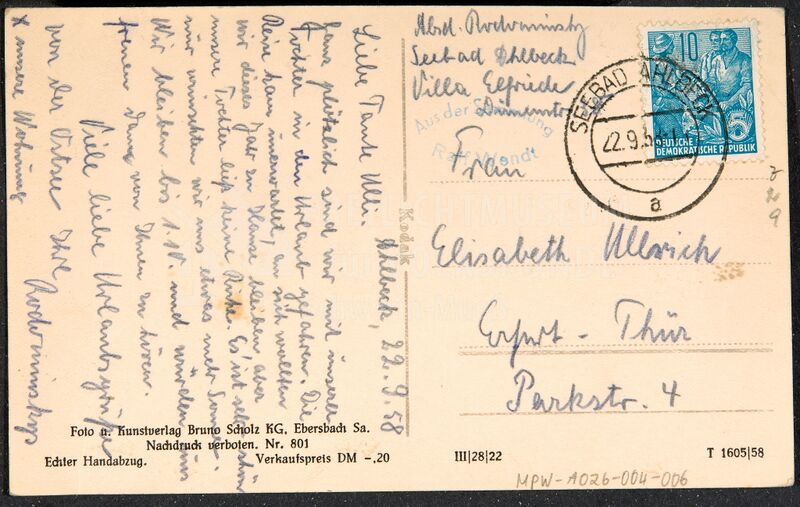 Ahlbeck, 22.9.58
Liebe Tante Ulli.
Ganz plötzlich sind wir mit unserer
Tochter in den Urlaub gefahren. Die
Reise kam unerwartet, an sich wollten
wir dieses Jahr zu Hause bleiben, aber
unsere Tochter ließ keine Ruhe. Es ist sehr schön
nur wünschten wir uns etwas mehr Sonne.
Wir bleiben bis 1.10. und würden uns
freuen dann von Ihnen zu hören.
Viele liebe Urlaubsgrüße
von der Ostsee Ihre
Rodominskys
x unsere Wohnung
Abs. Rodominsky
Seebad Ahlbeck
Villa Elfriede
Dünenstr
Aus der Sammlung
Ralf Wendt
10
5
DEUTSCHE
DEMOKRATISCHE REPUBLIK
SEEBAD AHLBECK
22.9.58
a
Frau
Elisabeth Ullrich
Erfurt - Thür
Parkstr. 4
Kodak
Foto u. Kunstverlag Bruno Scholz KG, Ebersbach Sa.
Nachdruck verboten. Nr. 801
Echter Handabzug. Verkaufspreis DM -.20
III|28|22
T 1605|58
MPW-A026-004-006